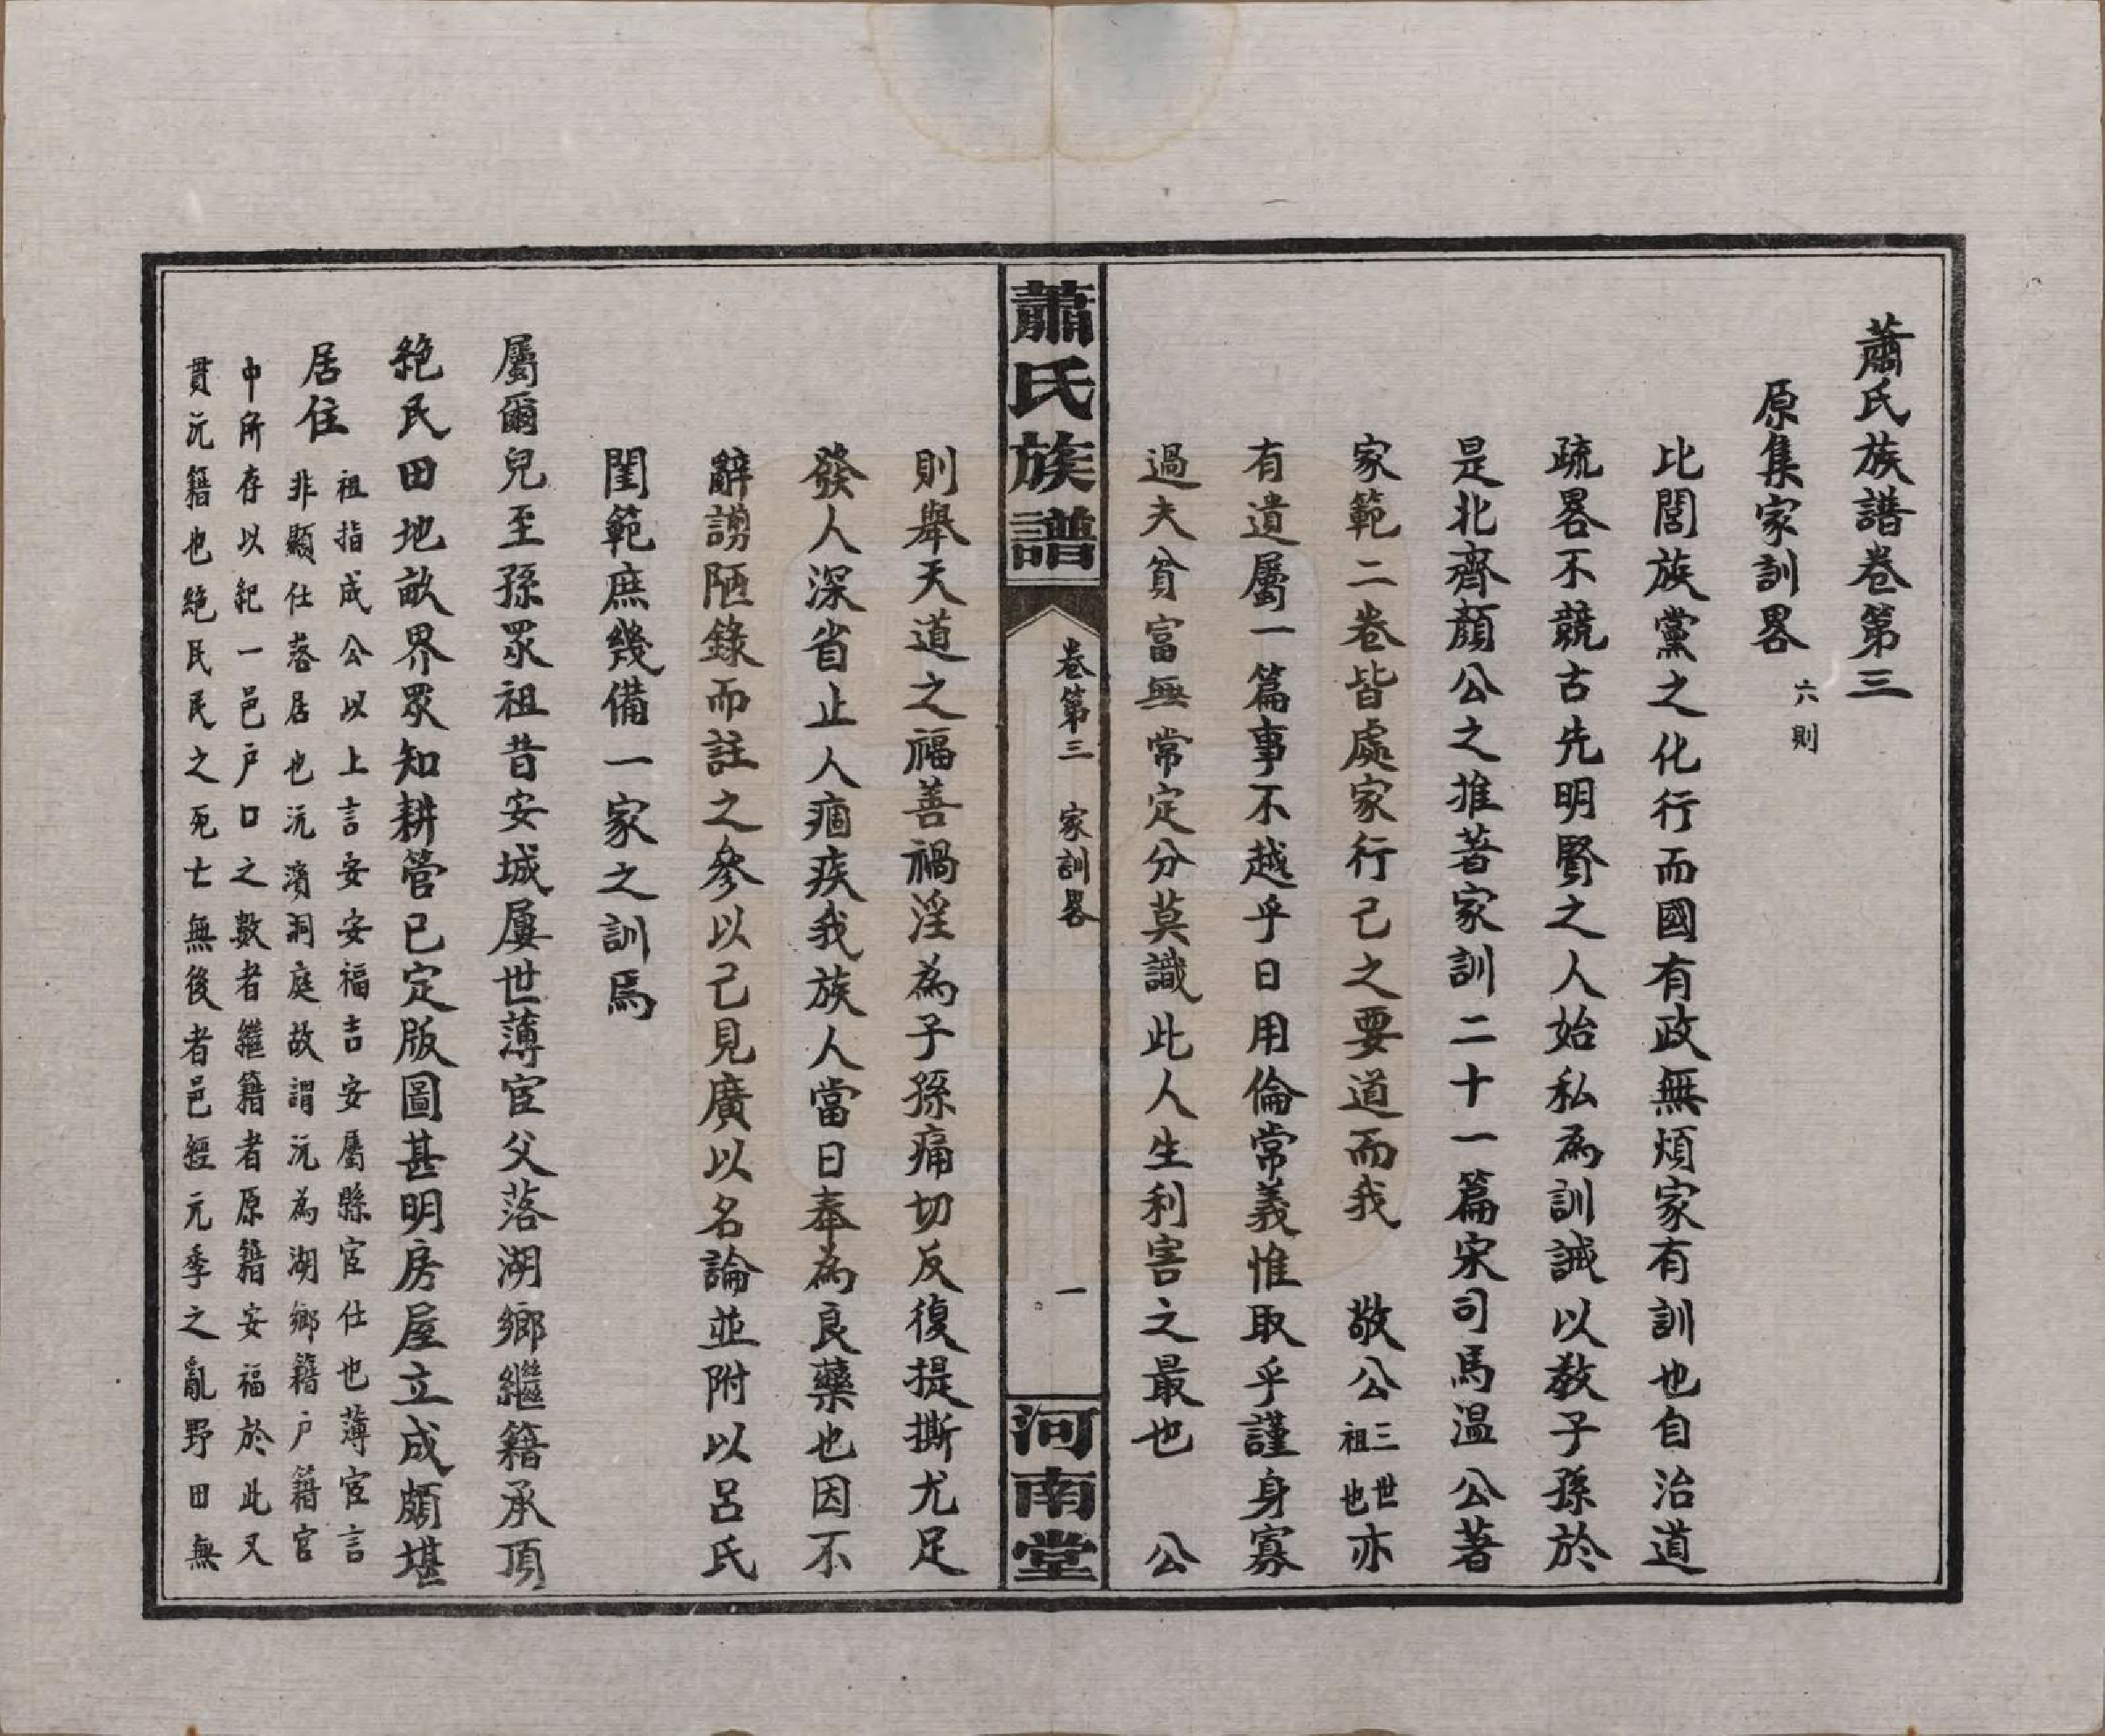 蕭氏族譜卷第三
原集家訓畧 六則
比閭族黨之化行而國有政無煩家有訓也自治道
疏畧不競古先明賢之人始私為訓誡以教子孫於
是北齊顏公之推著家訓二十一篇宋司馬溫公著
家範二卷皆處家行己之要道而我 敬公三世祖也亦
有遺屬一篇事不越乎日用倫常義惟取乎謹身寡
過夫貧富無常定分莫識此人生利害之最也 公
蕭氏族譜 卷第三 家訓畧 一 河南堂
則舉天道之福善禍淫為子孫痛切反復提撕尤足
發人深省止人痼疾我族人當日奉為良藥也因不
辭謭陋錄而註之參以己見廣以名論並附以呂氏
閨範庶幾備一家之訓焉
屬爾兒至孫眾祖昔安城屢世薄宦父落湖鄉繼籍承頂
絕民田地畝界眾知耕管已定版圖甚明房屋立成頗堪
居住 祖指成公以上言安安福吉安屬縣宦仕也薄宦言
非顯仕落居也沅濱洞庭故謂沅為湖鄉籍户籍官
中所存以紀一邑户口之數者繼籍者原籍安福於此又
貫沅籍也絕民民之死亡無後者邑經元季之亂野田無